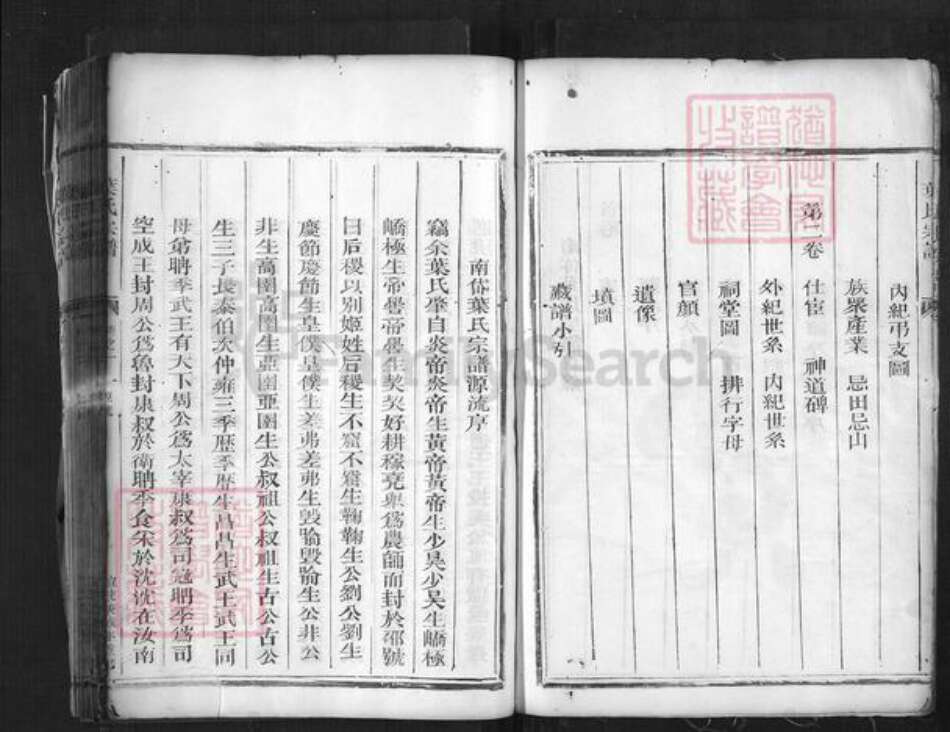 內紀弔支圖
族聚產業 忌田忌山
第二卷
仕宦 神道碑
外紀世系 內紀世系
祠堂圖 排行字母
官顏
遺像
墳圖
藏譜小引
南岱葉氏宗譜源流序
竊余葉氏肇自炎帝炎帝生黃帝黃帝生少昊少昊生蟜極
蟜極生帝嚳帝嚳生契契好耕稼堯舉為農師而封於邰號
曰后稷以別姬姓后稷生不窟不窟生鞠鞠生公劉公劉生
慶節慶節生皇僕皇僕生差弗差弗生毀隃毀隃生公非公
非生高圉高圉生亞圉亞圉生公叔祖公叔祖生古公古公
生三子長泰伯次仲雍三季歷季歷生昌昌生武王武王同
母弟聃季武王有天下周公為太宰康叔為司寇聃季為司
空成王封周公為魯封康叔於衛聃季食采於沈沈在汝南
葉氏宗譜
FamilySearch
譜學會
收藏